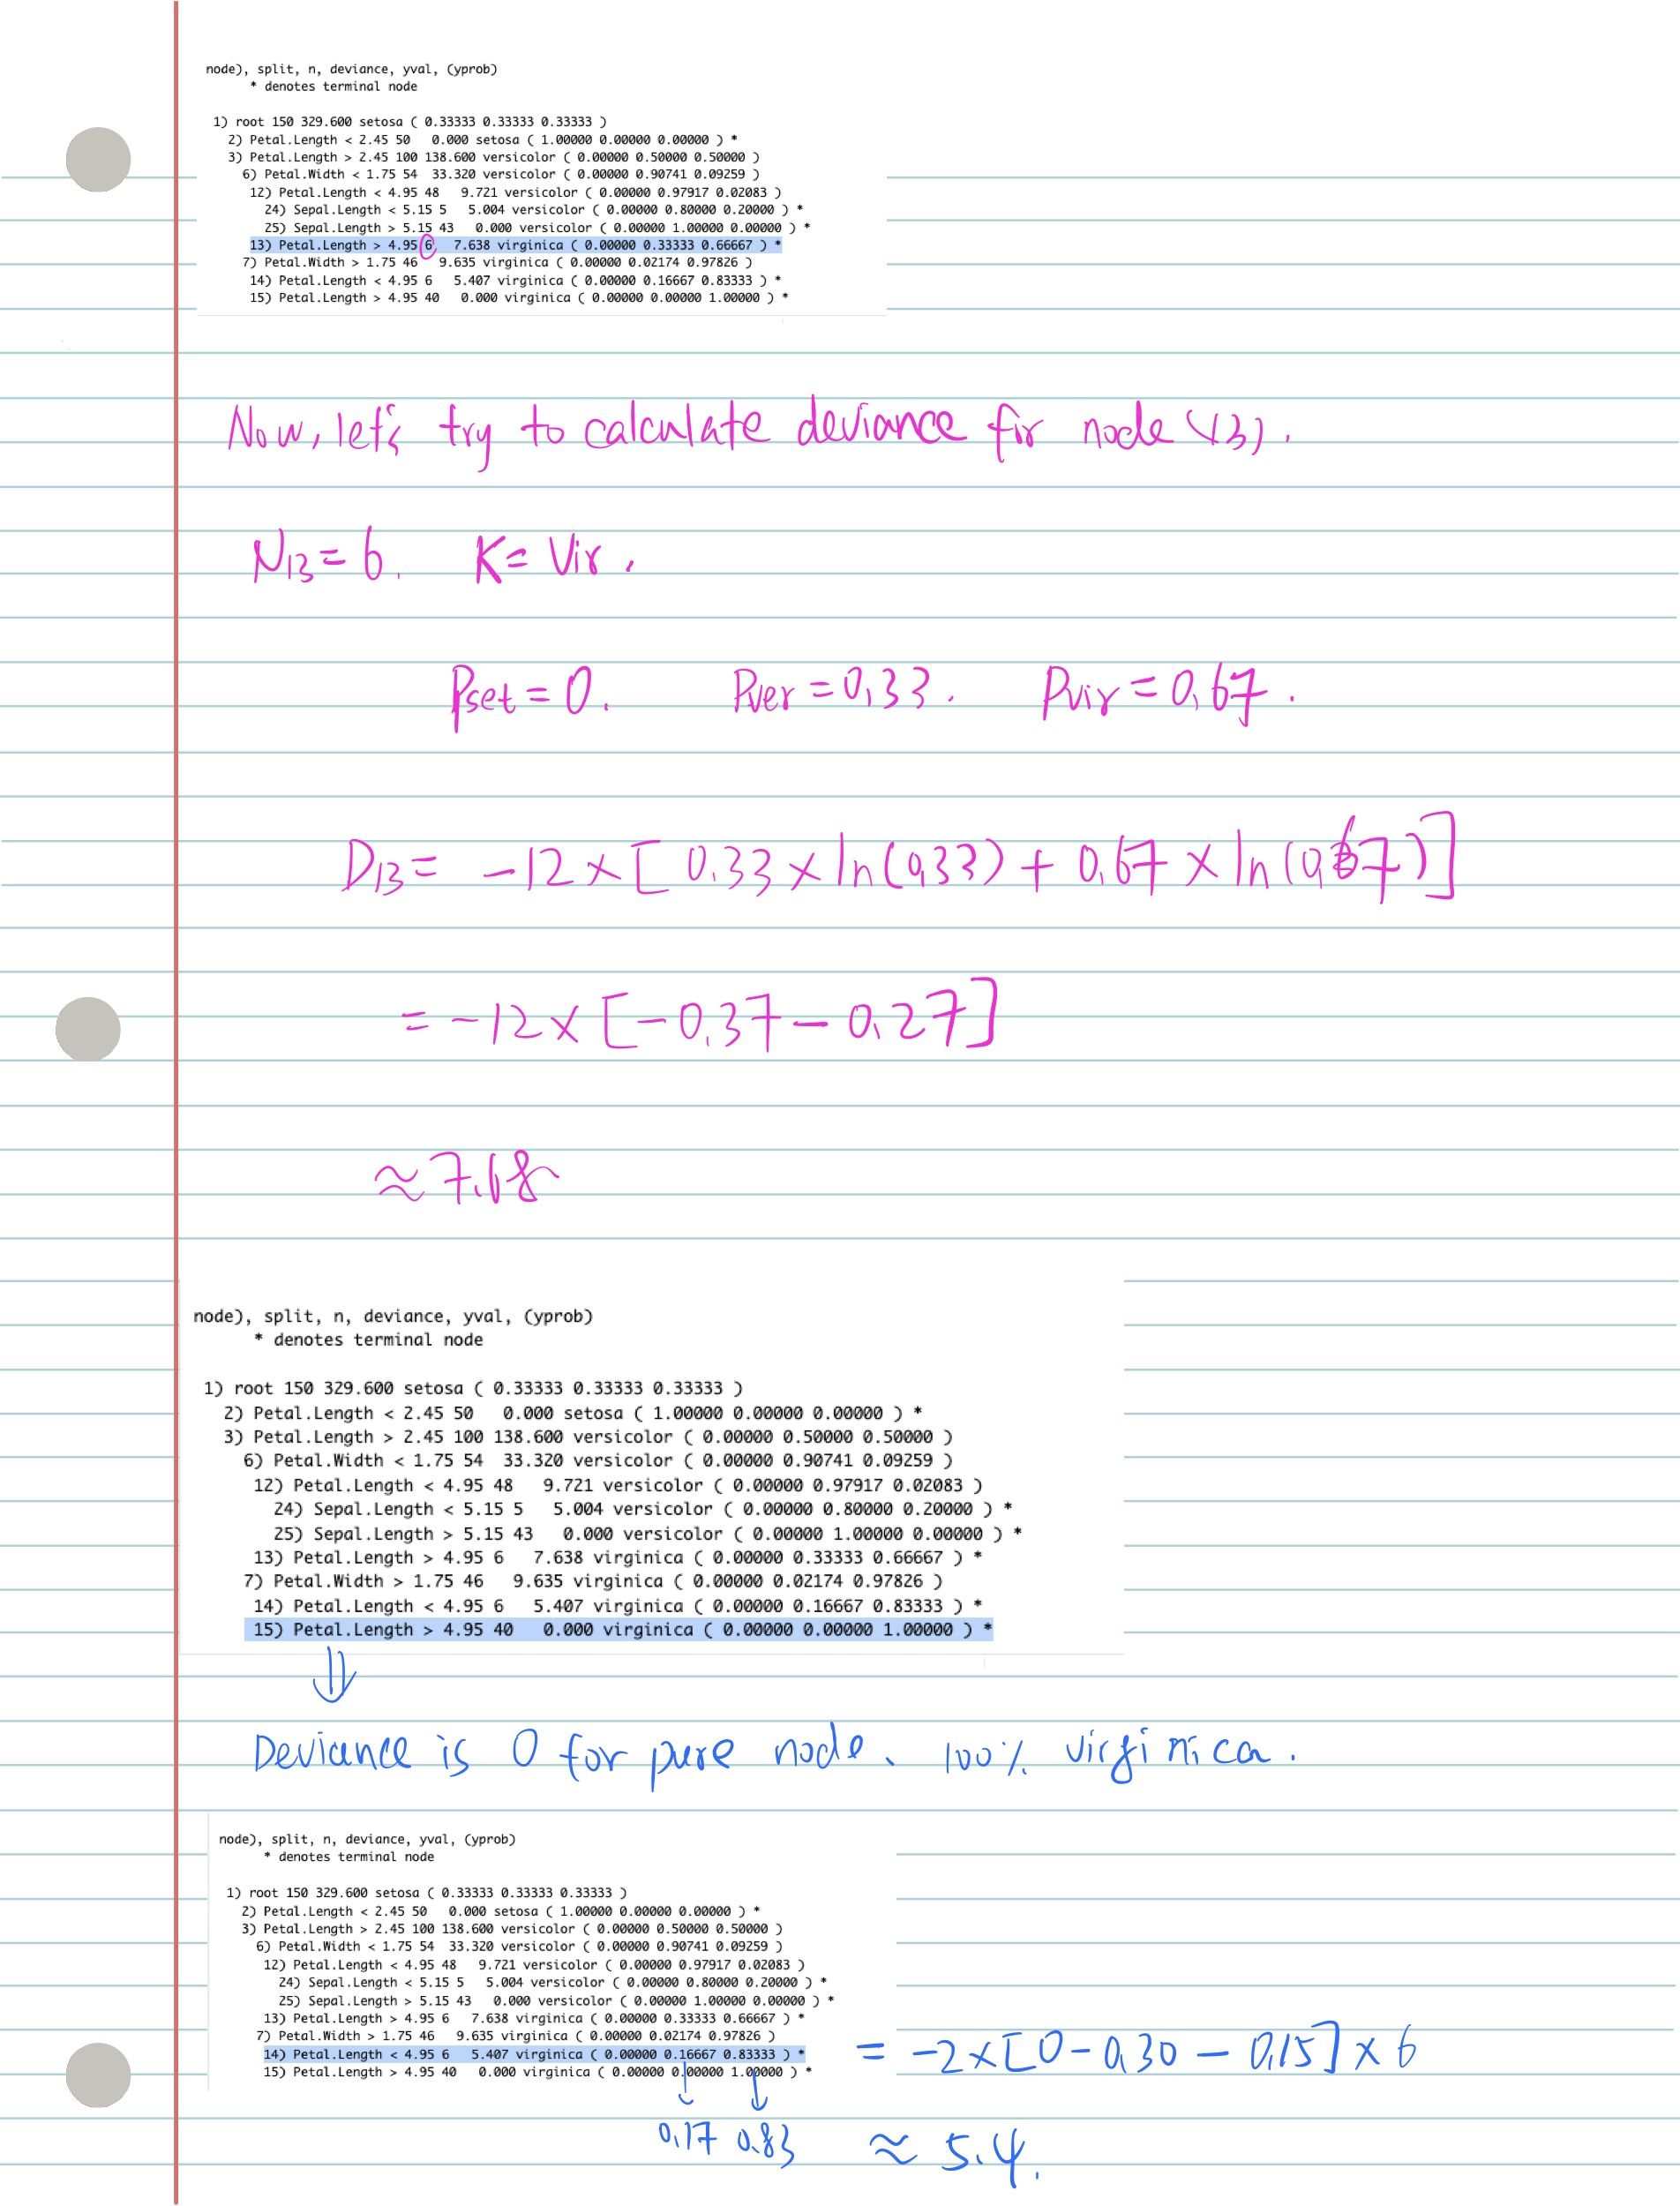 node), split, n, deviance, yval, (yprob)
* denotes terminal node
1) root 150 329.600 setosa ( 0.33333 0.33333 0.33333 )
2) Petal.Length < 2.45 50 0.000 setosa ( 1.00000 0.00000 0.00000 ) *
3) Petal.Length > 2.45 100 138.600 versicolor ( 0.00000 0.50000 0.50000 )
6) Petal.Width < 1.75 54 33.320 versicolor ( 0.00000 0.90741 0.09259 )
12) Petal.Length < 4.95 48 9.721 versicolor ( 0.00000 0.97917 0.02083 )
24) Sepal.Length < 5.15 5 5.004 versicolor ( 0.00000 0.80000 0.20000 ) *
25) Sepal.Length > 5.15 43 0.000 versicolor ( 0.00000 1.00000 0.00000 ) *
13) Petal.Length > 4.95 6 7.638 virginica ( 0.00000 0.33333 0.66667 ) *
7) Petal.Width > 1.75 46 9.635 virginica ( 0.00000 0.02174 0.97826 )
14) Petal.Length < 4.95 6 5.407 virginica ( 0.00000 0.16667 0.83333 ) *
15) Petal.Length > 4.95 40 0.000 virginica ( 0.00000 0.00000 1.00000 ) *
Now, let's try to calculate deviance for node 13).
N13 = 6. K = Vir.
Pset = 0. Pver = 0.33. Pvir = 0.67.
D13 = -12 × [ 0.33 × ln(0.33) + 0.67 × ln(0.67) ]
= -12 × [-0.37 - 0.27]
≈ 7.68
node), split, n, deviance, yval, (yprob)
* denotes terminal node
1) root 150 329.600 setosa ( 0.33333 0.33333 0.33333 )
2) Petal.Length < 2.45 50 0.000 setosa ( 1.00000 0.00000 0.00000 ) *
3) Petal.Length > 2.45 100 138.600 versicolor ( 0.00000 0.50000 0.50000 )
6) Petal.Width < 1.75 54 33.320 versicolor ( 0.00000 0.90741 0.09259 )
12) Petal.Length < 4.95 48 9.721 versicolor ( 0.00000 0.97917 0.02083 )
24) Sepal.Length < 5.15 5 5.004 versicolor ( 0.00000 0.80000 0.20000 ) *
25) Sepal.Length > 5.15 43 0.000 versicolor ( 0.00000 1.00000 0.00000 ) *
13) Petal.Length > 4.95 6 7.638 virginica ( 0.00000 0.33333 0.66667 ) *
7) Petal.Width > 1.75 46 9.635 virginica ( 0.00000 0.02174 0.97826 )
14) Petal.Length < 4.95 6 5.407 virginica ( 0.00000 0.16667 0.83333 ) *
15) Petal.Length > 4.95 40 0.000 virginica ( 0.00000 0.00000 1.00000 ) *
⇓
Deviance is 0 for pure node. 100% virginica.
node), split, n, deviance, yval, (yprob)
* denotes terminal node
1) root 150 329.600 setosa ( 0.33333 0.33333 0.33333 )
2) Petal.Length < 2.45 50 0.000 setosa ( 1.00000 0.00000 0.00000 ) *
3) Petal.Length > 2.45 100 138.600 versicolor ( 0.00000 0.50000 0.50000 )
6) Petal.Width < 1.75 54 33.320 versicolor ( 0.00000 0.90741 0.09259 )
12) Petal.Length < 4.95 48 9.721 versicolor ( 0.00000 0.97917 0.02083 )
24) Sepal.Length < 5.15 5 5.004 versicolor ( 0.00000 0.80000 0.20000 ) *
25) Sepal.Length > 5.15 43 0.000 versicolor ( 0.00000 1.00000 0.00000 ) *
13) Petal.Length > 4.95 6 7.638 virginica ( 0.00000 0.33333 0.66667 ) *
7) Petal.Width > 1.75 46 9.635 virginica ( 0.00000 0.02174 0.97826 )
14) Petal.Length < 4.95 6 5.407 virginica ( 0.00000 0.16667 0.83333 ) * = -2 × [0 - 0.30 - 0.15] × 6
15) Petal.Length > 4.95 40 0.000 virginica ( 0.00000 0.00000 1.00000 ) *
↓ ↓
0.17 0.83 ≈ 5.4.